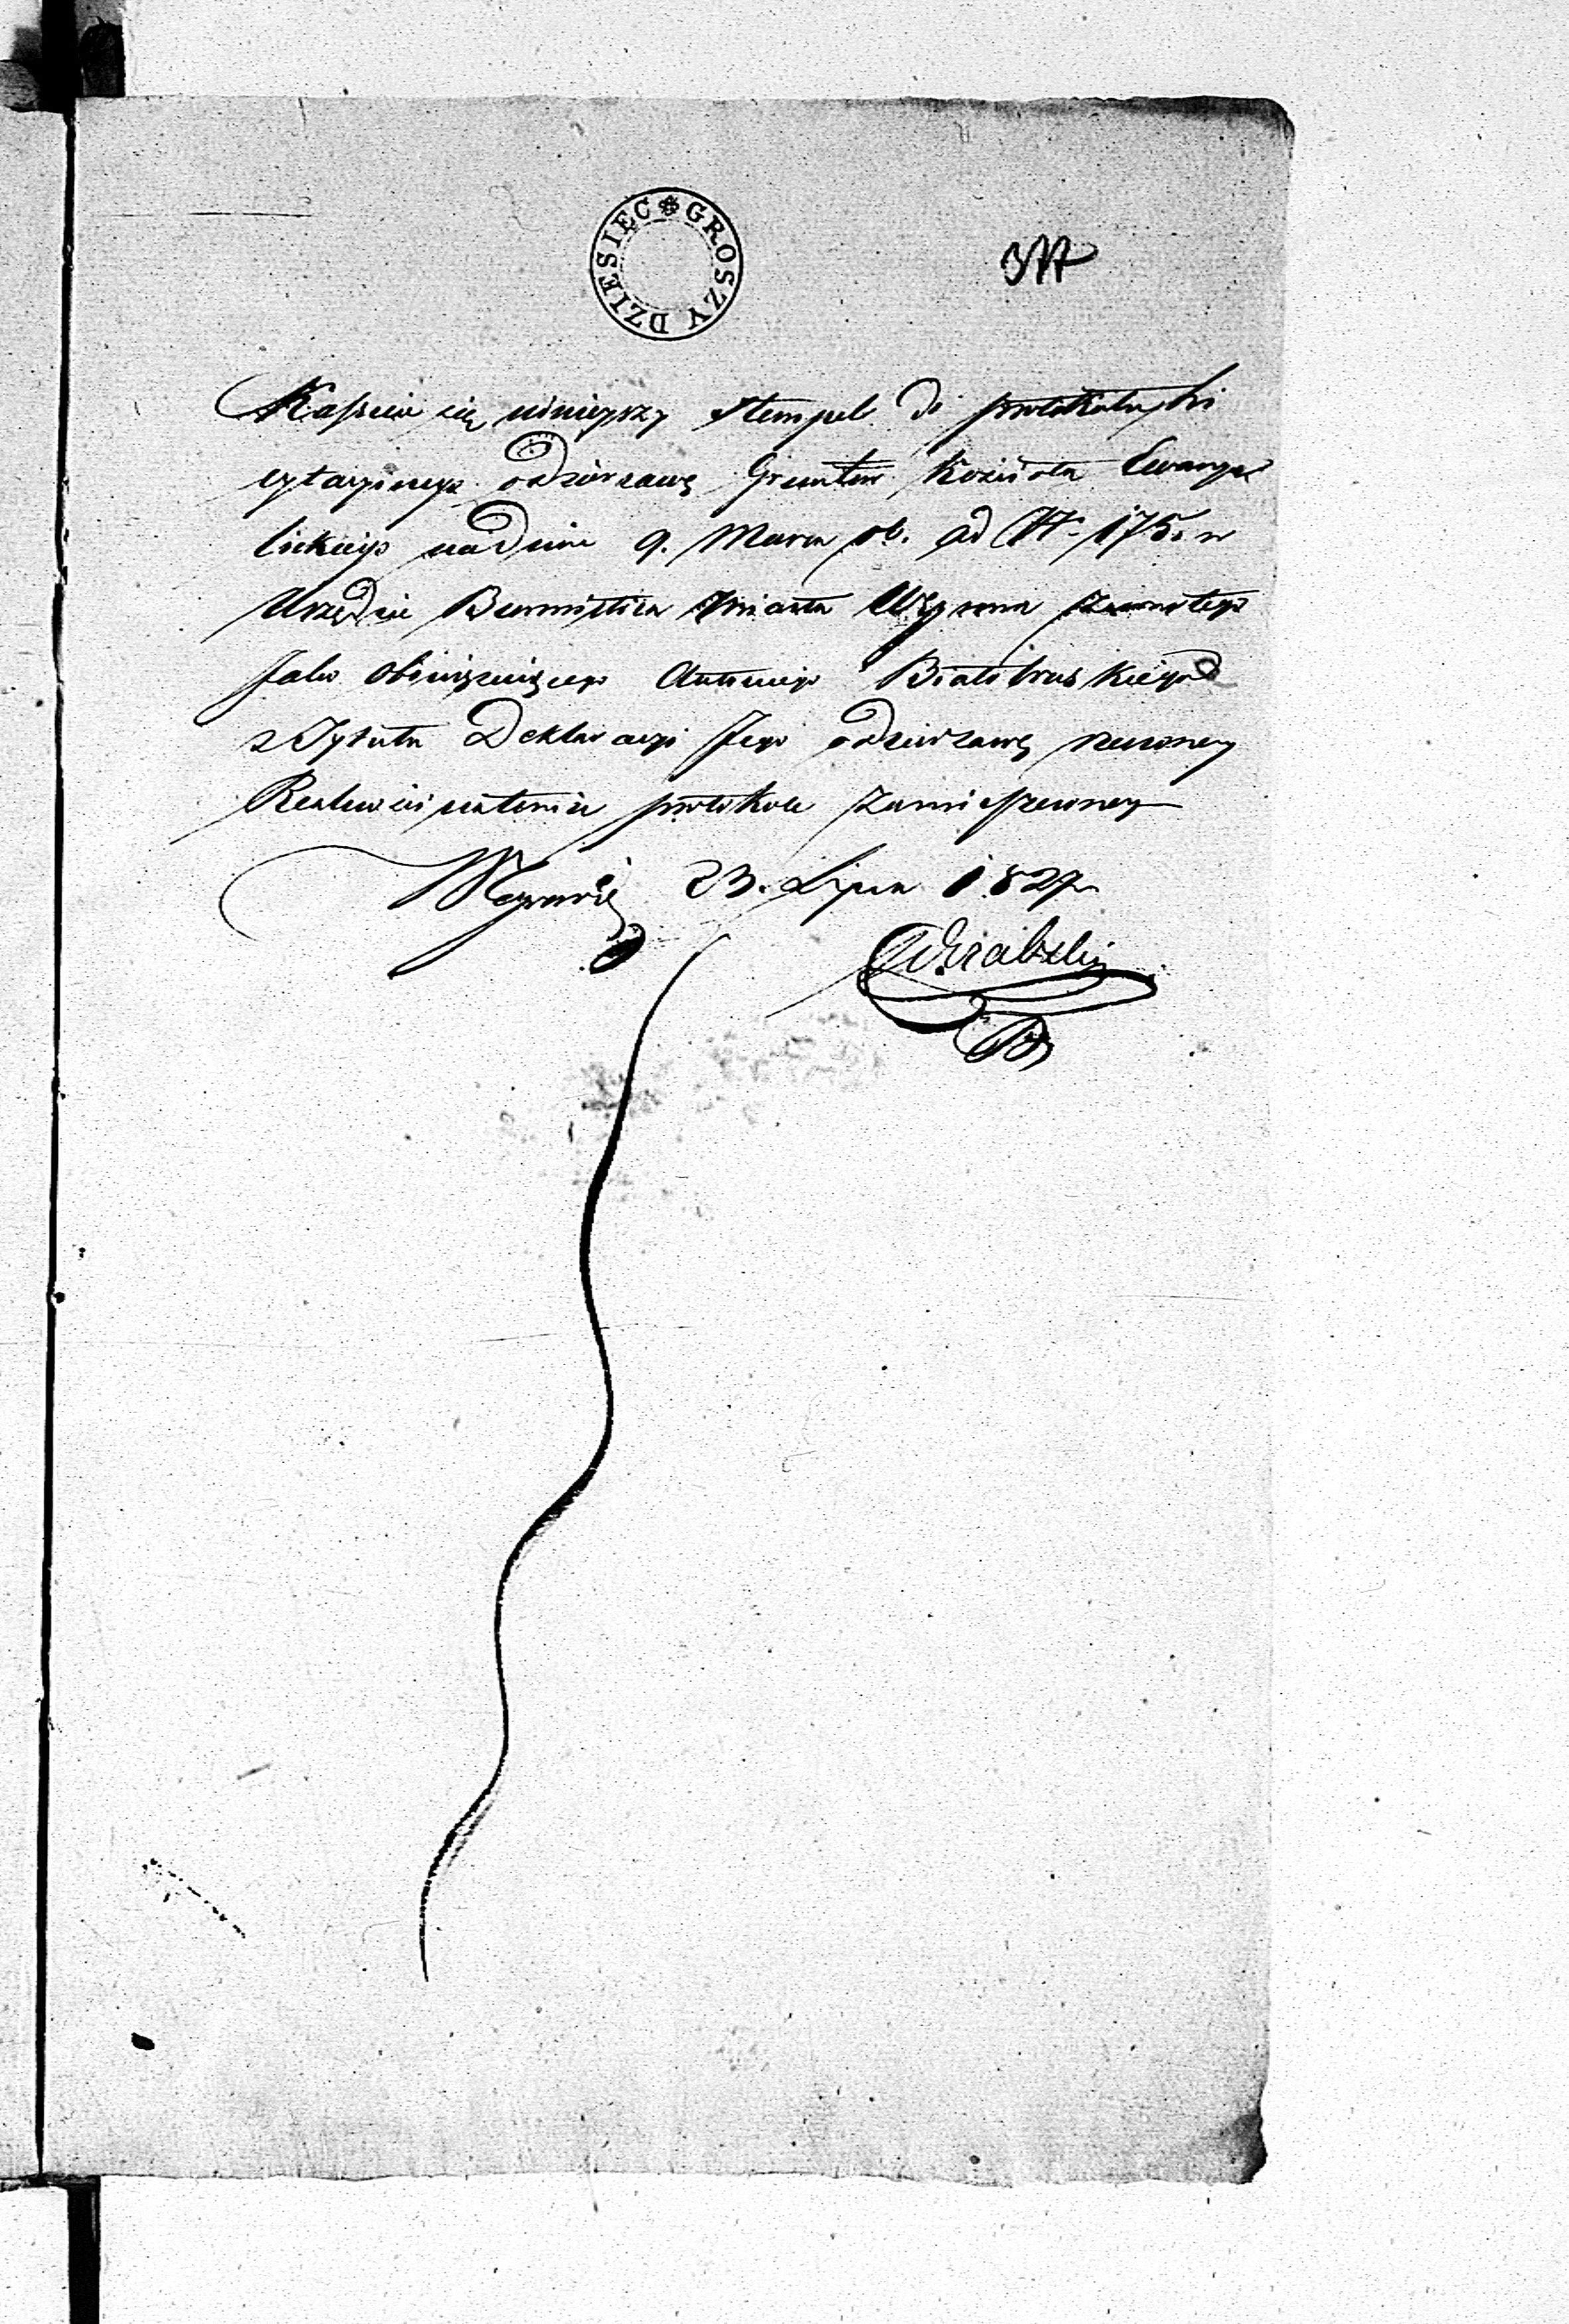 GROSZY DZIESIĘC
377
Kassuie się ninieyszy stempel do protokołu li
cytacyinego odzierzawę Gruntów Kościoła Ewange
lickiego na dniu 9. Marca rb. ad N. 175. w
Urzędzie Burmistrza Miasta Węgrowa zawartego
Jako obowiązuiącego Antoniego Białobrzeskiego
z Tytułu Deklaracyi Jego odzierzawę rzeczoney
Realności w protokole zamieszczoney
Węgrowie 23. Lipca 1827